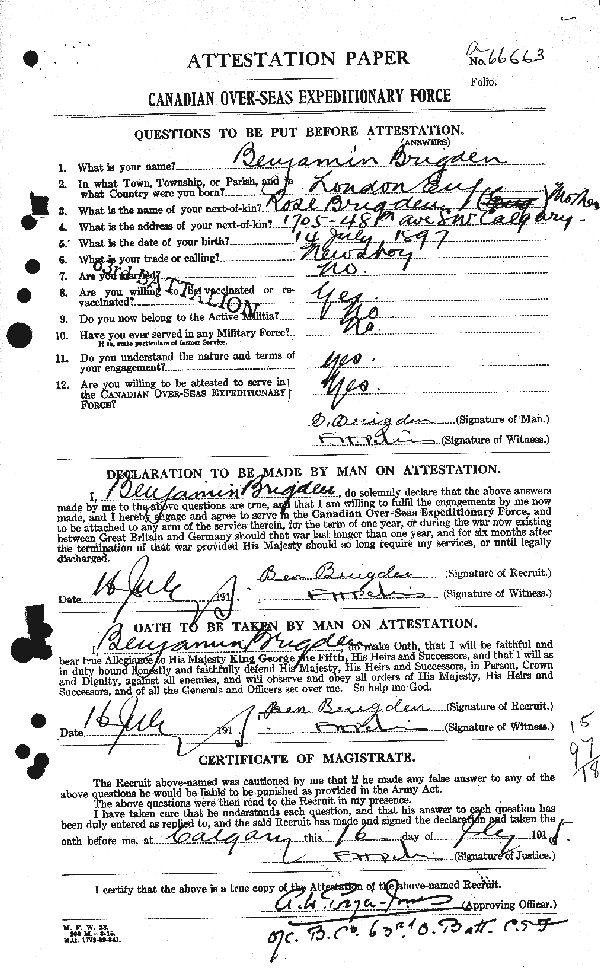 ATTESTATION PAPER
No. 66663
Folio.
CANADIAN OVER-SEAS EXPEDITIONARY FORCE
QUESTIONS TO BE PUT BEFORE ATTESTATION.
(ANSWERS)
1. What is your name? Benjamin Brigden
2. In what Town, Township, or Parish, and in
what Country were you born? London Eng
3. What is the name of your next-of-kin? Rose Brigden Mother
4. What is the address of your next-of-kin? 1705-48th ave SW Calgary.
5. What is the date of your birth? 14 July 1897
6. What is your trade or calling? Newsboy
7. Are you married? No.
63rd BATTALION
8. Are you willing to be vaccinated or re-
vaccinated? Yes
9. Do you now belong to the Active Militia? No
10. Have you ever served in any Military Force? No
If so, state particulars of former Service.
11. Do you understand the nature and terms of
your engagement? yes.
12. Are you willing to be attested to serve in
the CANADIAN OVER-SEAS EXPEDITIONARY
FORCE? Yes.
B. Brigden (Signature of Man.)
(Signature of Witness.)
DECLARATION TO BE MADE BY MAN ON ATTESTATION.
I, Benjamin Brigden, do solemnly declare that the above answers
made by me to the above questions are true, and that I am willing to fulfil the engagements by me now
made, and I hereby engage and agree to serve in the Canadian Over-Seas Expeditionary Force, and
to be attached to any arm of the service therein, for the term of one year, or during the war now existing
between Great Britain and Germany should that war last longer than one year, and for six months after
the termination of that war provided His Majesty should so long require my services, or until legally
discharged.
Ben Brigden (Signature of Recruit.)
Date 16 July 1915 (Signature of Witness.)
OATH TO BE TAKEN BY MAN ON ATTESTATION.
I, Benjamin Brigden, do make Oath, that I will be faithful and
bear true Allegiance to His Majesty King George the Fifth, His Heirs and Successors, and that I will as
in duty bound honestly and faithfully defend His Majesty, His Heirs and Successors, in Person, Crown
and Dignity, against all enemies, and will observe and obey all orders of His Majesty, His Heirs and
Successors, and of all the Generals and Officers set over me. So help me God.
Ben Brigden (Signature of Recruit.)
Date 16 July 1915 (Signature of Witness.)
15
97/18
CERTIFICATE OF MAGISTRATE.
The Recruit above-named was cautioned by me that if he made any false answer to any of the
above questions he would be liable to be punished as provided in the Army Act.
The above questions were then read to the Recruit in my presence.
I have taken care that he understands each question, and that his answer to each question has
been duly entered as replied to, and the said Recruit has made and signed the declaration and taken the
oath before me, at Calgary this 16 day of Jly 1915.
(Signature of Justice.)
I certify that the above is a true copy of the Attestation of the above-named Recruit.
(Approving Officer.)
M. F. W. 23.
o/c. B. Co 63rd O. Batt. C.E.F